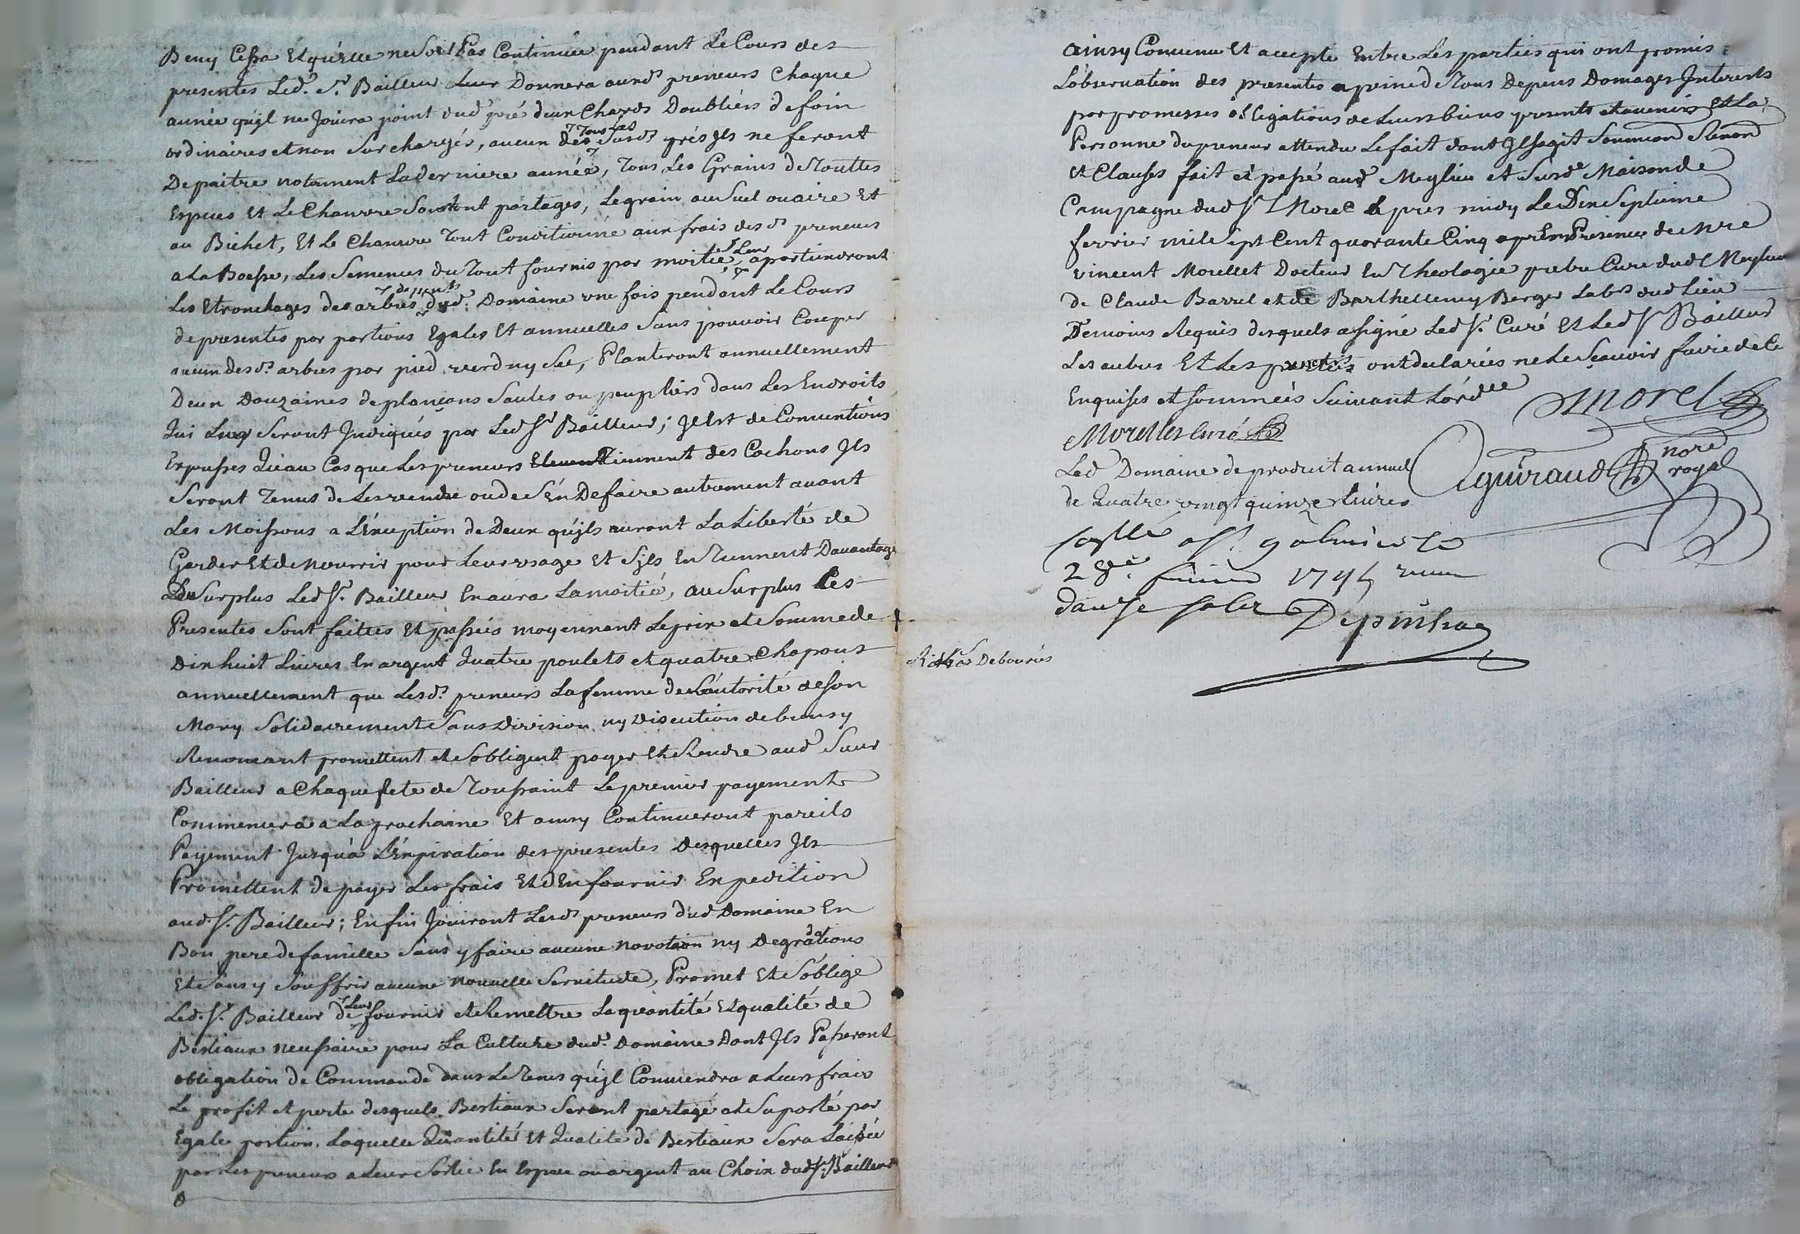 Beny Cessa Et quelle ne Soit Pas Continuée pendant Le Cours des
presentes Led. Sr. Bailleur Leur Donnera auxds preneurs Chaque
année quíl ne Jouira point dud pré deux Chards Doubliers de foin
ordinaires et non Surchargés, aucun des Susds prés Ils ne feront
Depaitre notamment La derniere année, Tous Les Grains de Touttes
Espèces Et Le Chanvre Seront partagés, Le grain au Suel ou aire Et
au Bichet, Et Le Chanvre Tout Conditionné aux frais desds preneurs
a La Boesse, Les Semences du Tout fournis par moitié, & Leur apartiendront
Les Etronchages des arbres dud. Domaine une fois pendant Le Cours
de presentes par portions Egales Et annuelles Sans pouvoir Couper
aucun desds. arbres par pied verd ny Sec, Planteront annuellement
Deux Douzaines de plançons Saules ou peupliers dans Les Endroits
qui Leur Seront Indiqués par Led Sr Bailleur; Il Est de Conventions
Expresses Qu'au Cas que Les preneurs Tiennent des Cochons Ils
Seront Tenus de Les vendre ou de S'en Defaire autrement avant
Les Moissons a L'exception de Deux quíls auront La Liberté de
Garder Et de Nourrir pour Leur usage Et Sils En Tiennent Davantage
Du Surplus Led Sr. Bailleur En aura La moitié, au Surplus Les
Presentes Sont faittes Et passées moyennant Le prix et Somme de
Dix huit Livres En argent Quatre poulets et quatre Chapons
annuellement que Lesds. preneurs La femme de L'autorité de Son
Mary Solidairement Sans Division ny Discution de biens y
Renonçant promettent et S'obligent payer Et Rendre aud Sieur
Bailleur a Chaque fete de Toussaint Le premier payement
Commencera a La prochaine Et ainsy Continueront pareils
Payement Jusqua L'Expiration des presentes Desquelles Ils
Promettent de payer Les frais Et d'En fournir Expedition
aud Sr. Bailleur; Enfin Jouiront Lesds preneurs dud Domaine En
Bon pere de famille Sans y faire aucune novation ny Degradations
Et Sans y Souffrir aucune nouvelle Servitude, Promet Et S'oblige
Led. Sr. Bailleur de Leur fournir et Remettre La quantité Et qualité de
Bestiaux necessaire pour La Culture dud. Domaine Dont Ils Passeront
obligation de Commande dans Le Tems quíl Conviendra a Leurs frais
Le profit et perte desquels Bestiaux Seront partagé et Suporté par
Egale portion, Laquelle Quantité Et Qualité de Bestiaux Sera Laissée
par Les preneurs a Leur Sortie En Espece ou argent au Choix dud Sr. Bailleur
ainsy Convenu Et accepté Entre Les parties qui ont promis
L'observation des presentes a peine de Tous Depens Domages Interests
par promesses obligations de Leurs biens presents et avenir Et La
Personne du preneur attendu Le fait dont Il Sagit Soumission Renon
et Clauses fait et passé aud Meylieu et Susd Maison de
Campagne dud Sr Morel apres midy Le Dix Septieme
fevrier mil Sept Cent quarante Cinq En Presence de Mre
vincent Morellet Docteur En Theologie pretre Curé dud Meylieu
de Claude Barrel et de Barthellemy Berger Labrs dud Lieu
Temoins Requis desquels a Signé Led Sr. Curé Et Led Sr Bailleur
Les autres Et Les parties ont declarées ne Le Sçavoir faire de Ce
Enquises et Sommées Suivant Lórdce
Morel
Morellet Curé
Led Domaine de produit annuel
de Quatre vingt quinze Livres
Aguiraud nore royal
Conllé a St. galmier Le
28e. fevrier 1745 reçu
douze Sols Depinhac
Debourés